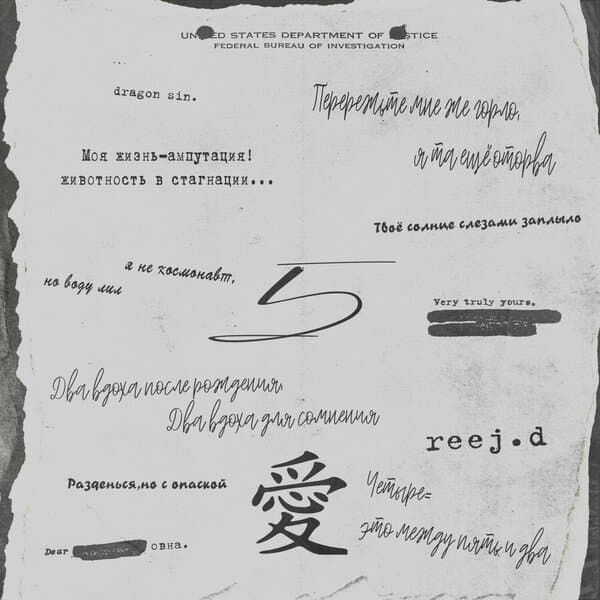 UNITED STATES DEPARTMENT OF JUSTICE
FEDERAL BUREAU OF INVESTIGATION
dragon sin.
Перережьте мне же горло,
я та ещё оторва
Моя жизнь-ампутация!
животность в стагнации...
Твоё солнце слезами заплыло
я не космонавт,
но воду лил
5
Very truly yours.
Два вдоха после рождения,
Два вдоха для сомнения
reej.d
Разденься,но с опаской
愛
Четыре=
это между пять и два
Dear
овна.